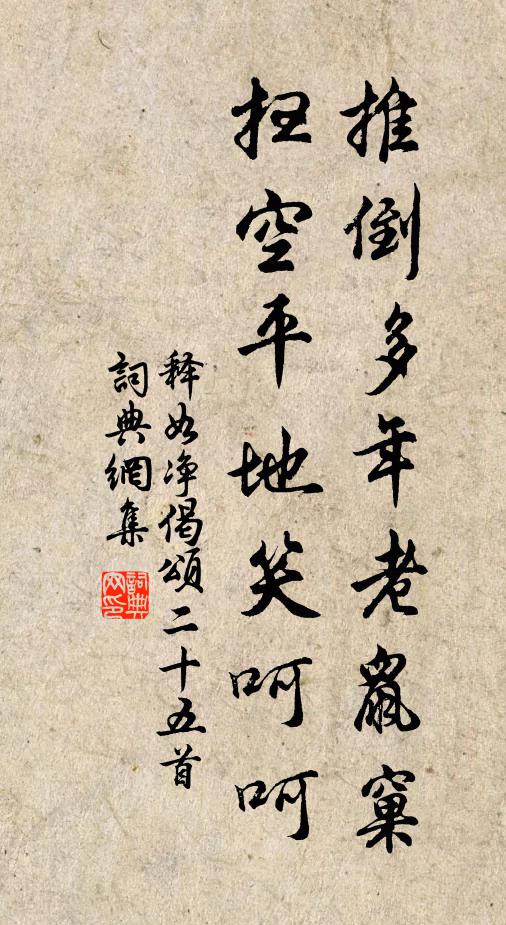 推倒多年老鼠窠
扭空平地笑呵呵
释如净偈颂二十五首
詞典網集
詞典網印